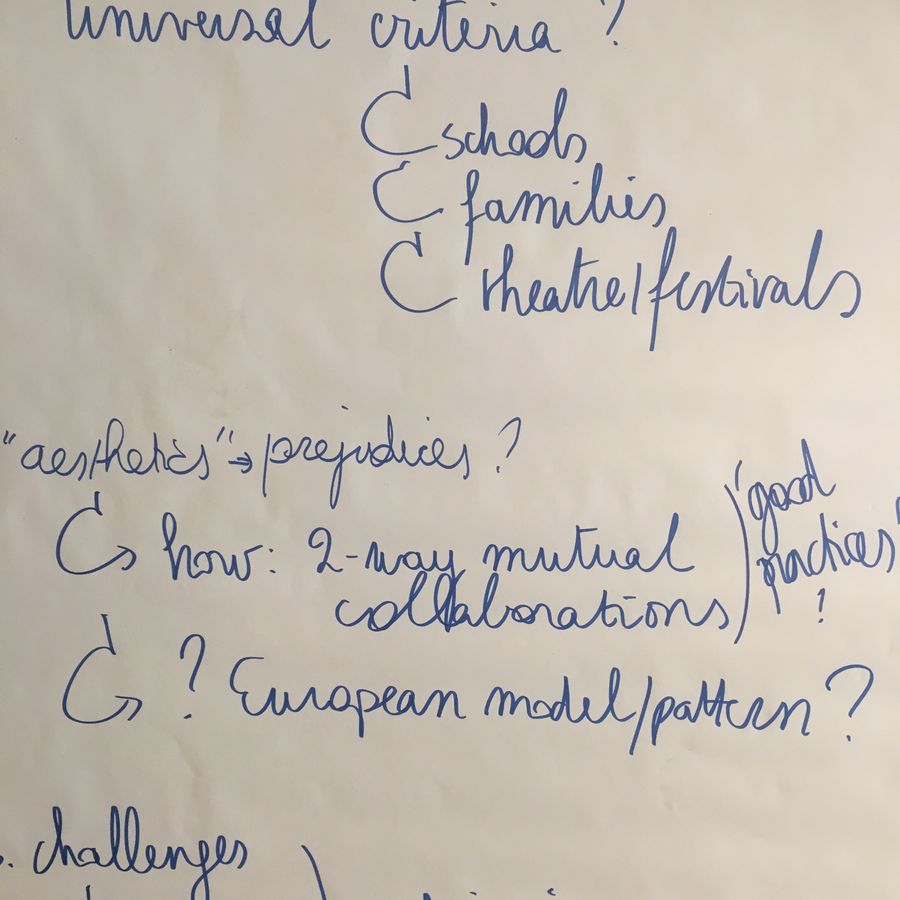 universal criteria ?
schools
families
theatre/festivals
"aesthetics" → prejudices ?
how: 2-way mutual
collaborations
"good
practices"
!
? European model/pattern ?
. challenges